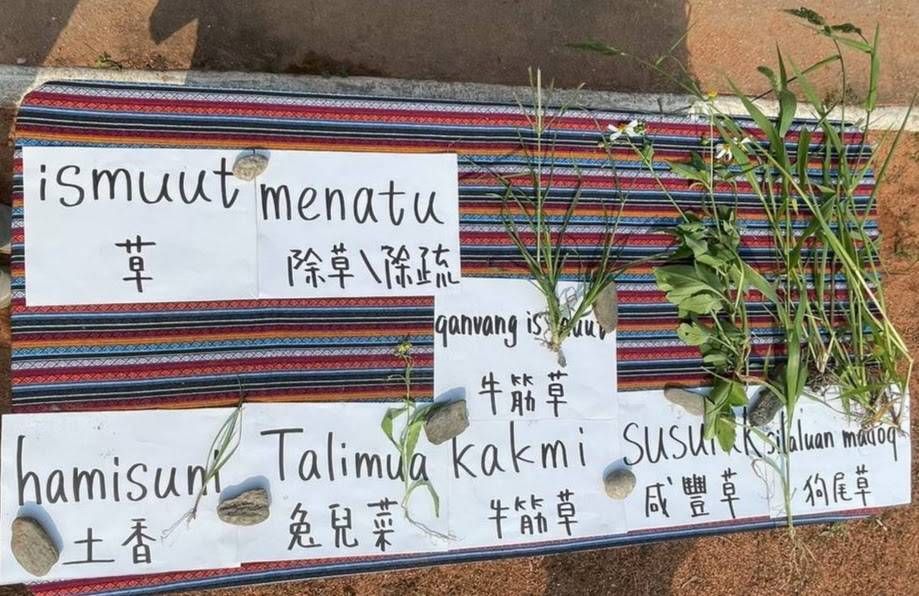 ismuut
草
menatu
除草\除疏
qanvang is
牛筋草
hamisuni
土香
Talimua
兔兒菜
kakmi
牛筋草
咸豐草
silaluan madoq
狗尾草